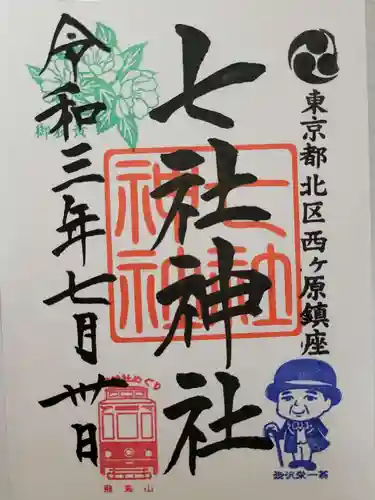 東京都北区西ヶ原鎮座
七社神社
七社神社
令和三年七月卅日
飛鳥山
渋沢栄一翁